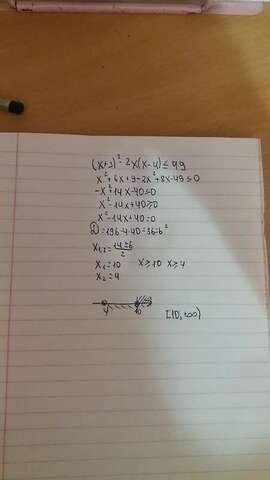 (x+3)² - 2x(x-4) ≤ 49
x² + 6x + 9 - 2x² + 8x - 49 ≤ 0
-x² + 14x - 40 ≤ 0
x² - 14x + 40 ≥ 0
x² - 14x + 40 = 0
D = 196 - 4·40 = 36 = 6²
x₁,₂ = (14 ± 6)/2
x₁ = 10 x ≥ 10 x ≥ 4
x₂ = 4
4 10
[10, ∞)